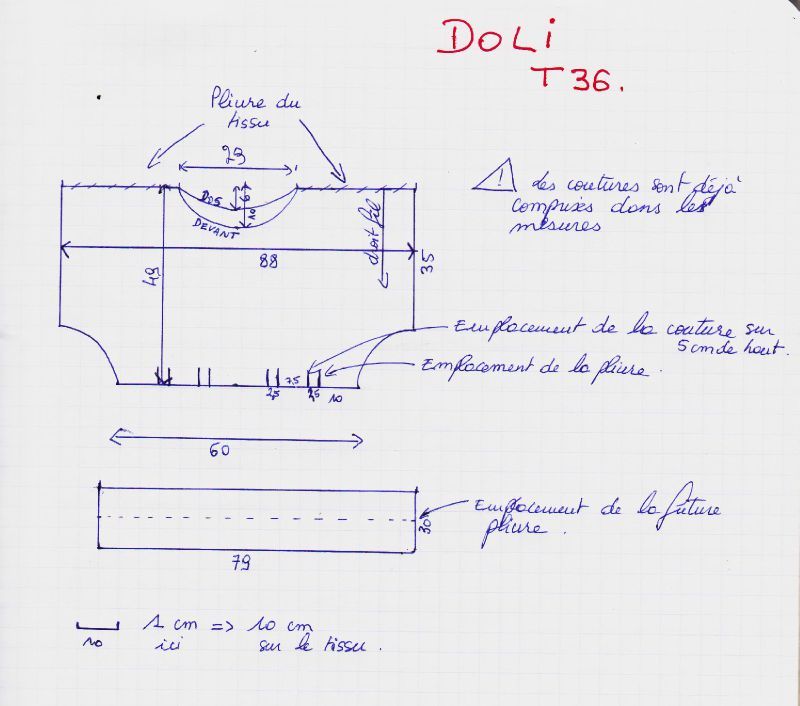 DOLi
T36.
Pliure du
tissu
29
Dos
6
10
DEVANT
droit fil
88
35
49
⚠ Les coutures sont déjà
comprises dans les
mesures
Emplacement de la couture sur
5 cm de haut.
Emplacement de la pliure.
7,5
2,5
2,5
10
60
Emplacement de la future
pliure.
30
79
1 cm => 10 cm
10
ici sur le tissu.